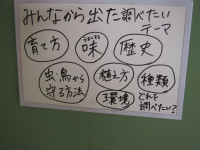 みんなから出た調べたい
テーマ
育て方
味
歴史
虫鳥から
守る方法
植え方
種類
環境
どれを
調べたい?